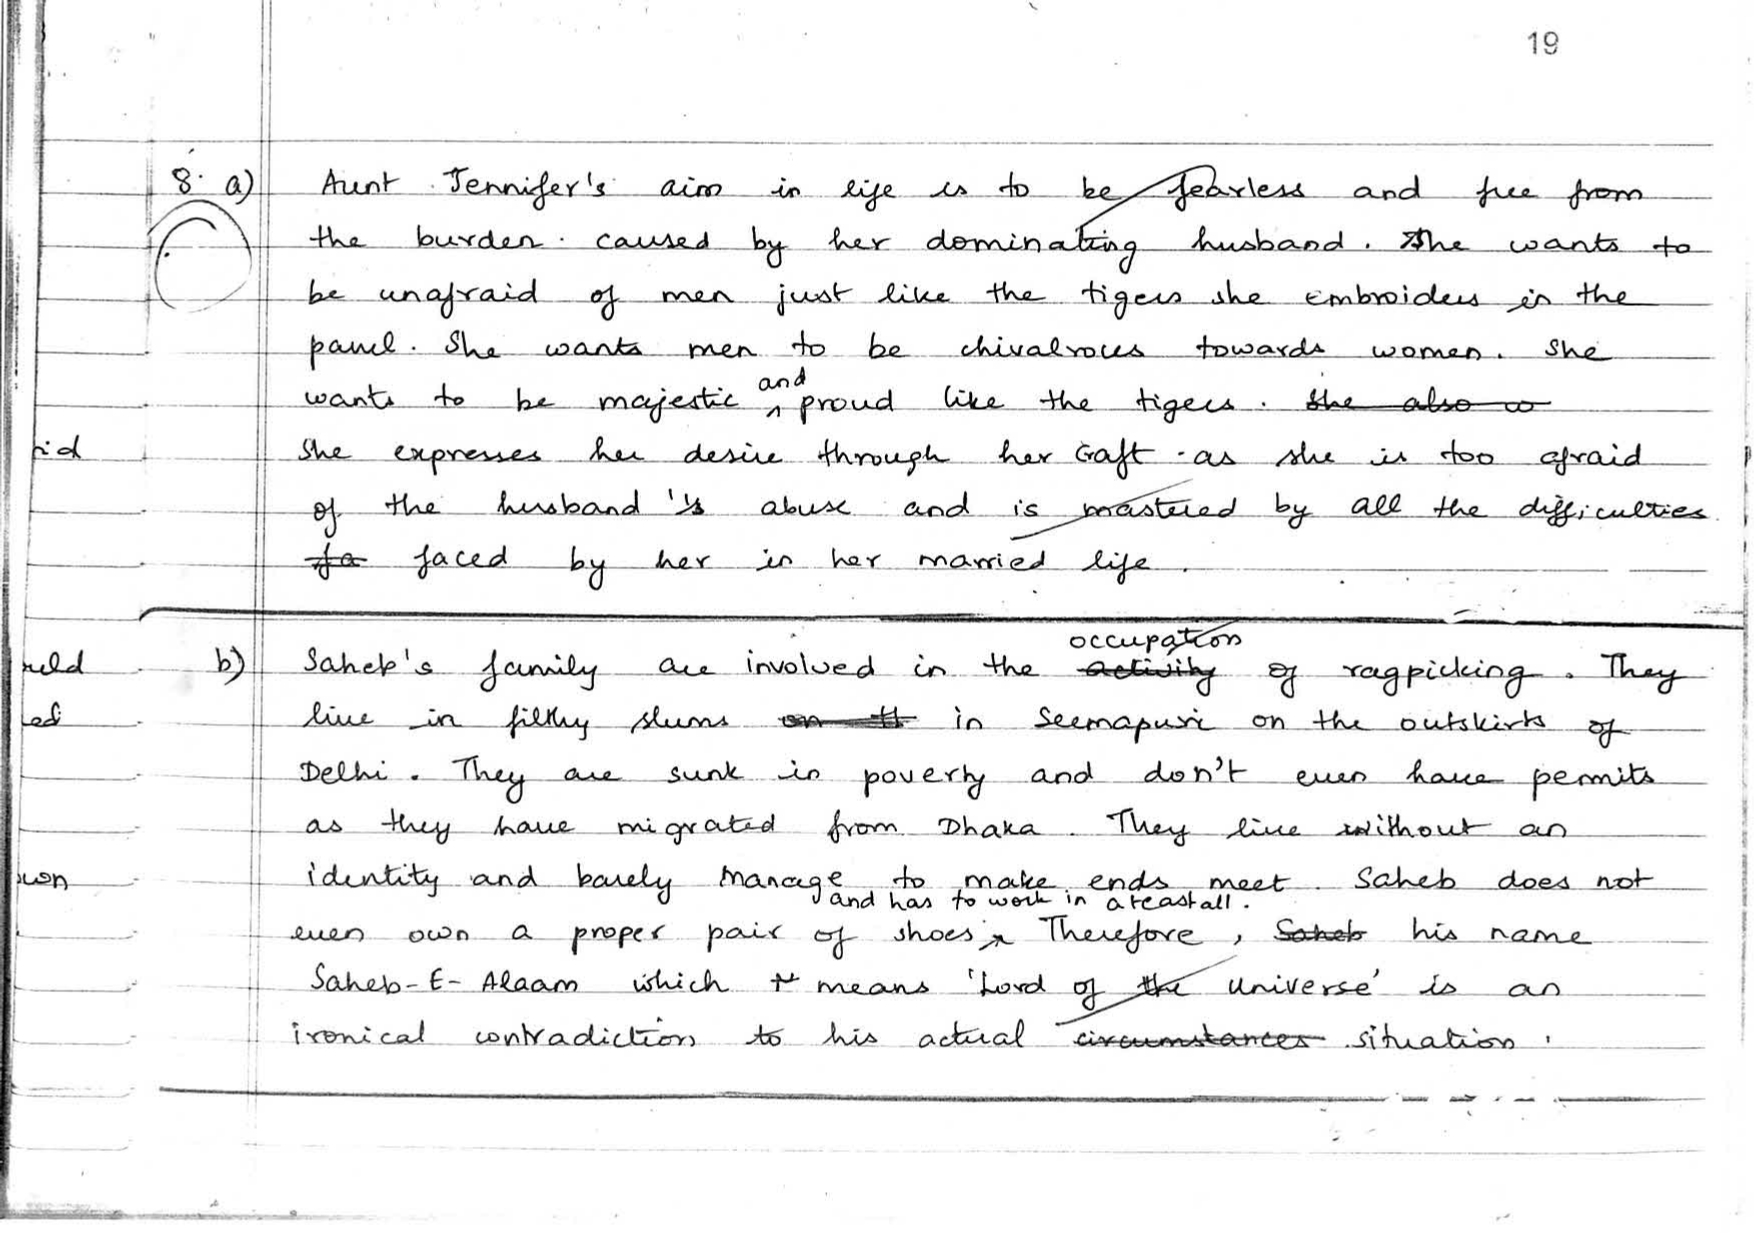 19
8. a) Aunt Jennifer's aim in life is to be fearless and free from
the burden. caused by her dominating husband. She wants to
be unafraid of men just like the tigers she embroiders in the
panel. She wants men to be chivalrous towards women. She
and
wants to be majestic ^ proud like the tigers. She also w
rid
She expresses her desire through her craft as she is too afraid
of the husband's abuse and is mastered by all the difficulties
fa faced by her in her married life.
occupation
uld
b) Saheb's family are involved in the activity of ragpicking. They
ed
live in filthy slums on th in Seemapuri on the outskirts of
Delhi. They are sunk in poverty and don't even have permits
as they have migrated from Dhaka. They live without an
identity and barely manage to make ends meet. Saheb does not
and has to work in a teastall.
even own a proper pair of shoes ^ Therefore, Saheb his name
Saheb-E-Alaam which means 'Lord of the Universe' is an
ironical contradiction to his actual circumstances situation.